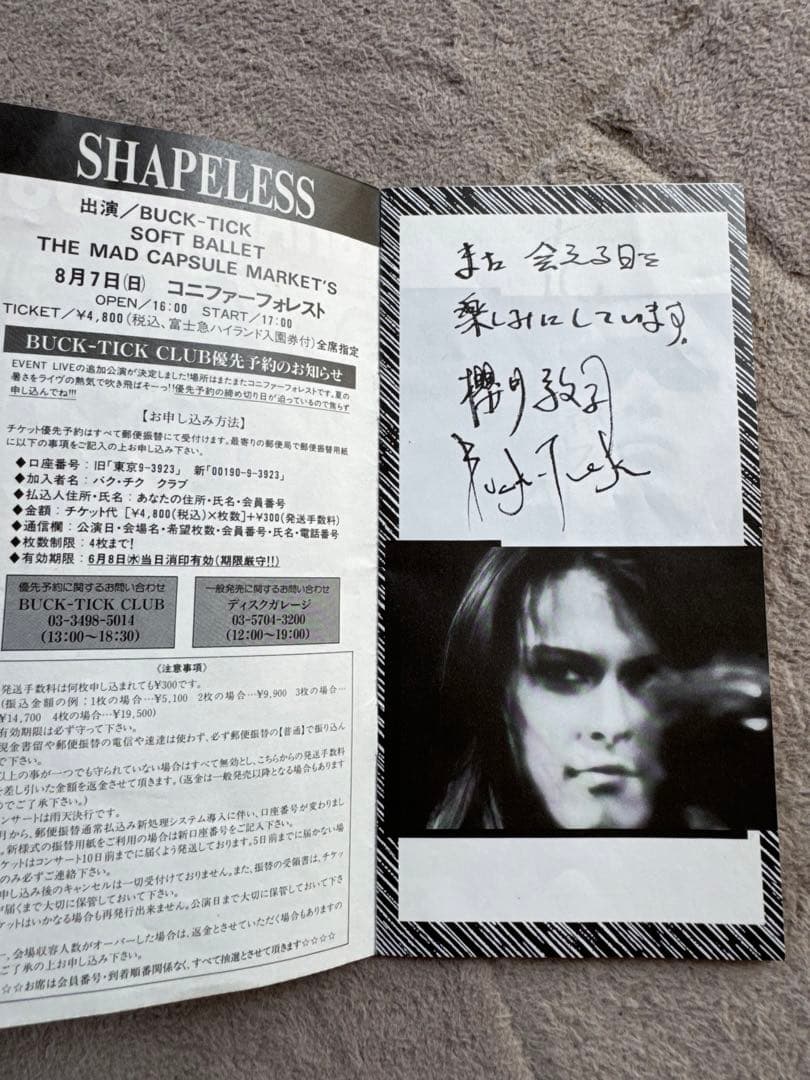 SHAPELESS
出演／BUCK-TICK
SOFT BALLET
THE MAD CAPSULE MARKET'S
8月7日(日) コニファーフォレスト
OPEN／16:00 START／17:00
TICKET／¥4,800(税込、富士急ハイランド入園券付)全席指定
BUCK-TICK CLUB優先予約のお知らせ
EVENT LIVEの追加公演が決定しました!場所はまたまたコニファーフォレストです。夏の
暑さをライヴの熱気で吹き飛ばそーっ!!優先予約の締め切り日が迫っているので焦らず
申し込んでね!!!
【お申し込み方法】
チケット優先予約はすべて郵便振替にて受付けます。最寄りの郵便局で郵便振替用紙
に以下の事項をご記入の上お申し込み下さい。
◆口座番号：旧「東京9-3923」 新「00190-9-3923」
◆加入者名：バク・チク クラブ
◆払込人住所・氏名：あなたの住所・氏名・会員番号
◆金額：チケット代［¥4,800(税込)×枚数］+¥300(発送手数料)
◆通信欄：公演日・会場名・希望枚数・会員番号・氏名・電話番号
◆枚数制限：4枚まで!
◆有効期限：6月8日㈬当日消印有効(期限厳守!!)
優先予約に関するお問い合わせ
BUCK-TICK CLUB
03-3498-5014
(13:00〜18:30)
一般発売に関するお問い合わせ
ディスクガレージ
03-5704-3200
(12:00〜19:00)
〈注意事項〉
発送手数料は何枚申し込まれても¥300です。
(振込金額の例：1枚の場合…¥5,100 2枚の場合…¥9,900 3枚の場合…
¥14,700 4枚の場合…¥19,500)
有効期限は必ず守って下さい。
現金書留や郵便振替の電信や速達は使わず、必ず郵便振替の【普通】で振り込ん
で下さい。
以上の事が一つでも守られていない場合はすべて無効とし、こちらからの発送手数料
を差し引いた金額を返金させて頂きます。(返金は一般発売以降となる場合もあります
のでご了承下さい。)
ンサートは雨天決行です。
月から、郵便振替通常払込み新処理システム導入に伴い、口座番号が変わりまし
。新様式の振替用紙をご利用の場合は新口座番号をご記入下さい。
ケットはコンサート10日前までに届くよう発送しております。5日前までに届かない場
のみ必ずご連絡下さい。
申し込み後のキャンセルは一切受付けておりません。また、振替の受領書は、チケッ
が届くまで大切に保管しておいて下さい。
ケットはいかなる場合も再発行出来ません。公演日まで大切に保管しておいて下さ
、会場収容人数がオーバーした場合は、返金とさせていただく場合もありますの
ご了承の上お申し込み下さい。
☆☆お席は会員番号・到着順番関係なく、すべて抽選とさせて頂きます☆☆☆☆
また 会える日を
楽しみにしています。
櫻井敦司
Buck-Tick